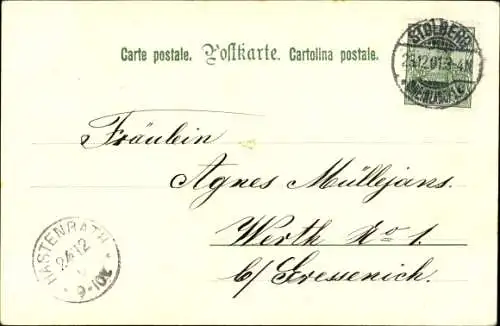 Carte postale. Postkarte. Cartolina postale.
STOLBERG
23.12.01.3-4N
Fräulein
Agnes Müllejans.
Werth No 1.
b/Gressenich.
HASTENRATH
24/12
9-10V